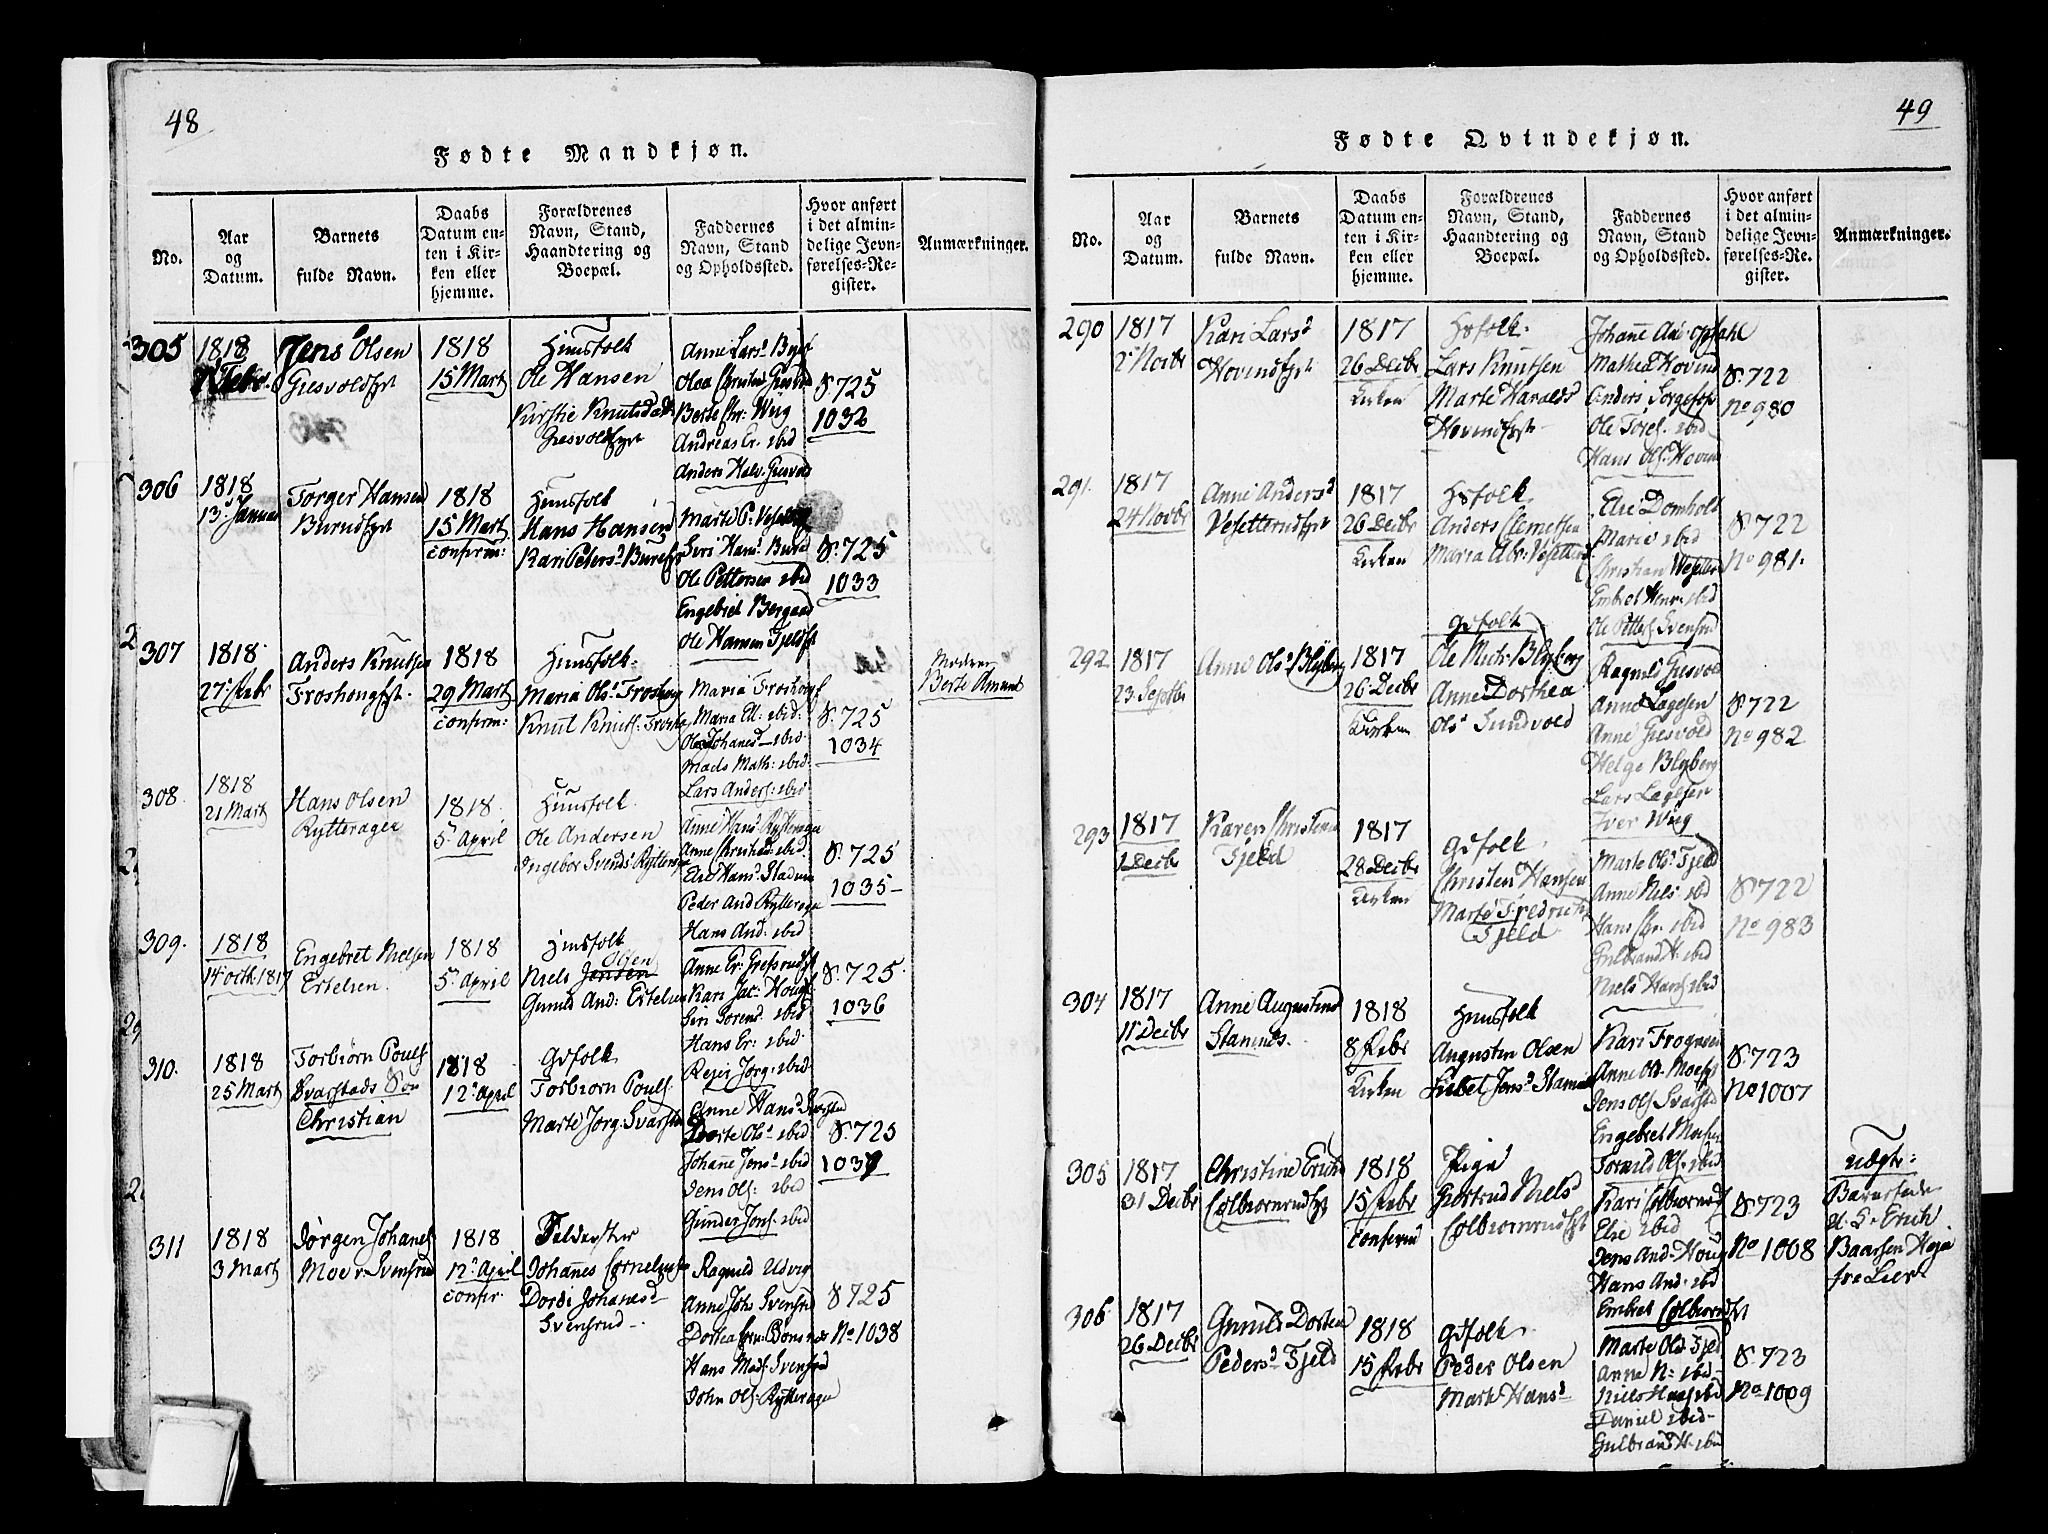 48
Fødte Mandkjøn.
No.
Aar
og
Datum.
Barnets
fulde Navn.
Daabs
Datum en-
ten i Kir-
ken eller
hjemme.
Forældrenes
Navn, Stand,
Haandtering og
Boepæl.
Faddernes
Navn, Stand
og Opholdssted.
Hvor anført
i det almin-
delige Jevn-
førelses-Re-
gister.
Anmærkninger.
305
1818
Febr.
Jens Olsen
Giesvoldeyet
1818
15 Mart
Huusfolk
Ole Hansen
Kirstie Knutsdatt
Giesvoldeyet
Anne Lars
Berte Chr: Wiig
Andreas Er. ibid
Anders Halv. Giesvold
S. 725
1032
306
1818
13 Januar
Torger Hansen
Burudeyet
1818
15 Mart
confirm:
Huusfolk
Hans Hansen
Kari Peters
Marte P.
Siri Hans Burud
Ole Pettersen ibid
Engebret Bergaad
Ole Hansen
S. 725
1033
307
1818
27 Febr
Anders Knutsen
Froshougeyet
1818
29 Mart
confirm:
Huusfolk
Maria Ols Froshoug
Knut Knuts:
Maria
Maria El: ibid:
Johanes ibid
Mads Math: ibid
Lars Anders: ibid
S. 725
1034
Moderen
Berte Amunds
308
1818
21 Mart
Hans Olsen
Rytterager
1818
5 April
Huusfolk
Ole Andersen
Ingebor Svends Rytterager
Anne Hans Rytterager
Anne ibid
Else Hans Stadum
Peder And Rytterager
Hans And: ibid
S. 725
1035
309.
1818
14 Octb. 1817
Engebret Nielsen
Ertelien
1818
5 April
Huusfolk
Olsen
Niels Jensen
Gunild And: Ertelien
Anne Er:
Kari Jac: Houg
Siri Sorens ibid
Hans Er: ibid
Jorg: ibid
S. 725
1036
310.
1818
25 Mart
Torbiørn Pouls
Svarstads Søn
Christian
1818
12 April
Gdfolk
Torbiørn Pouls
Marte Jorg: Svarstad
Anne Hans
Dorte Ols ibid
Johanne Jens ibid
Jens Ols: ibid
Gunder Jons: ibid
S. 725
1037
311
1818
3 Mart
Jørgen Johanes
Moe Svensrud
1818
12 April
confir
Johannes Cornelius
Dordi Johanesd
Svensrud
Ragnild Udvig
Anne Johs Svensrud
Dortea
Hans Mads Svensrud
John Ols: Rytterager
S 725
No 1038
49
Fødte Qvindekjøn.
No.
Aar
og
Datum.
Barnets
fulde Navn.
Daabs
Datum en-
ten i Kir-
ken eller
hjemme.
Forældrenes
Navn, Stand,
Haandtering og
Boepæl.
Faddernes
Navn, Stand
og Opholdssted.
Hvor anført
i det almin-
delige Jevn-
førelses-Re-
gister.
Anmærkninger.
290
1817
2 Novbr
Kari Lars
Hovendeyet
1817
26 Decbr
Kirken
Hsfolk
Lars Knutsen
Marte Haralds
Hovendeyet
Johane
Mathea Hovend
Anders
Ole Torf. ibid
Hans Ols: Hovend
S. 722
No 980
291.
1817
24 Novbr
Anne Anders
Vesetterudeyet
1817
26 Decbr
Kirken
Hsfolk
Anders Clemetsen
Maria Abr: Vesetterud
Else Domholt
Marie ibid
Christian
Embret Henr: ibid
Ole Petters Svensrud
S. 722
No 981.
292
1817
23 Septbr
Anne Ols Blyberg
1817
26 Decbr
Kirken
Gdfolk
Ole Mich: Blyberg
Anne Dorthea
Ols Sundvold
Ragnild Giesvold
Anne Lagesen
Anne Giesvold
Helge Blyberg
Lars Lagesen
Iver Wiig
S. 722
No 982
293
1817
1 Decbr
Karen Christens
Fjeld
1817
28 Decbr
Kirken
Gdfolk
Christen Hansen
Marte Fredrich
Fjeld
Marte Ols Fjeld
Anne Niels ibid
Hans Chr. ibid
Gulbrand H: ibid
Niels Hans: ibid
S. 722
No 983
304
1817
11 Decbr
Anne Augustinus
Stamnes
1818
8 Febr
Kirken
Huusfolk
Augustin Olsen
Sibet Jens Stamnes
Kari Frognsen
Anne Ol.
Jens Ols Svarstad
Engebret
Tornild Ols: ibid
S. 723
No 1007
305
1817
31 Decbr
Christine Erichs
Colbiornrudeyet
1818
15 Febr
confirm
Pige
Giertrud Niels
Colbiornrudeyet
Kari Colbiornrud
Else ibid
Jens And: Houg
Hans And: ibid
Embret Colbiornrudeyet
S. 723
No 1008
uægte:
Barnefader
u. S. Erich
Baarsen
fra Lier
306
1817
26 Decbr
Gunild Dortea
Peders Fjeld
1818
15 Febr
Gdfolk
Peder Olsen
Marte Hans
Marte Ols Fjeld
Anne N: ibid
Niels Hans ibid
Daniel ibid
Gulbrand H: ibid
S. 723
No 1009